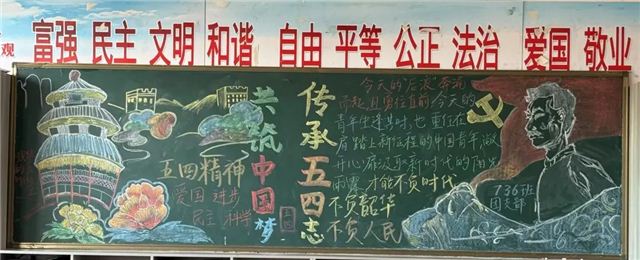 观 富强 民主 文明 和谐 自由 平等 公正 法治 爱国 敬业
共筑中国梦
传承五四志
五四精神
爱国 进步
民主 科学
今天的"后浪"奔流
而起,且勇往直前,今天的
青年生逢其时,也重任在
肩,踏上新征程的中国青年,敞
开心扉汲取新时代的阳光
雨露,才能不负时代
不负韶华
不负人民
736班
团支部